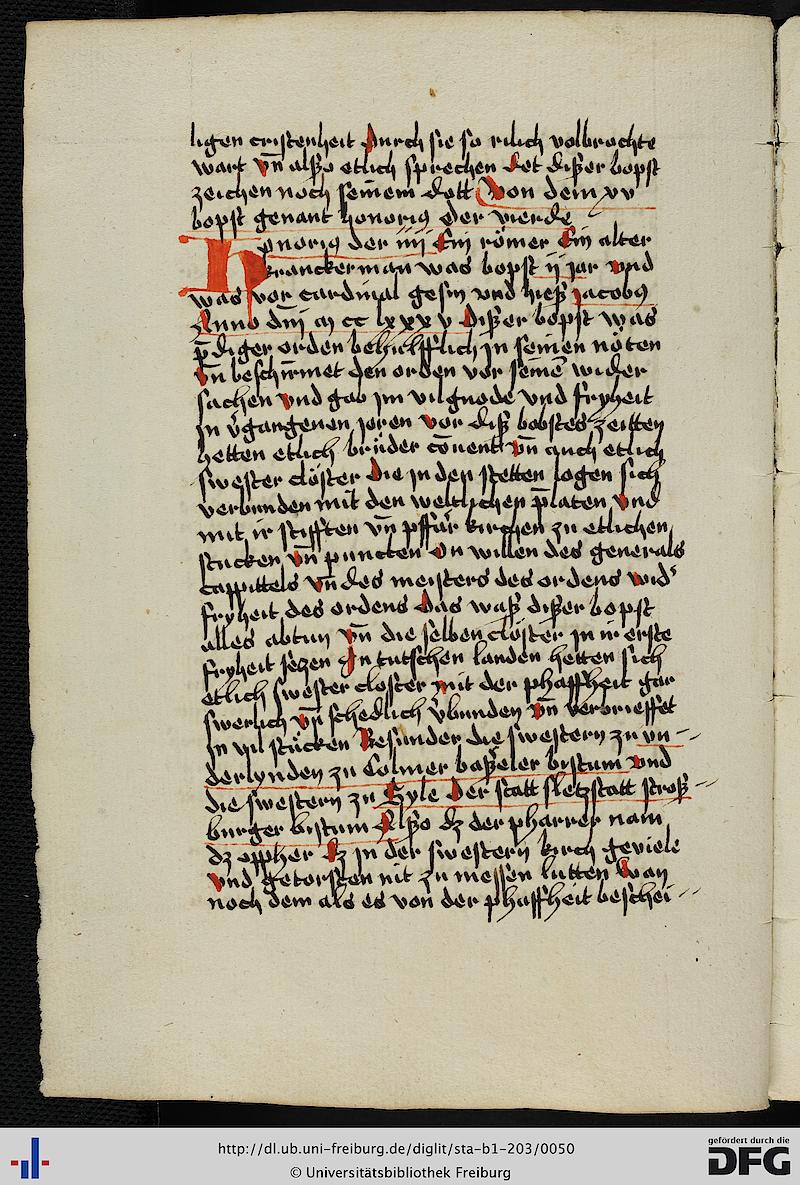 ligen cristenheit Durch sie so rilich volbrochte
wart vn̄ alßo etlich sprechen det dißer bopst
zeichen noch seinem dott Von dem xv
bopst genant honoriꝯ der vierde
Honoriꝯ der iiii Ein römer Ein alter
krancker man was bopst ij jar vnd
was vor cardinal gesin vnd hieß jacobꝯ
Anno dnī m cc lxxx v Dißer bopst was
p̄diger orden behulfflich jn seinen nöten
vn̄ beschirmet den orden vor seinē wider
sachen vnd gab jm vil gnode vnd fryheit
jn v̓gangenen joren vor diß bobstes zeitten
hetten etlich brüder cōuent vn̄ auch etlich
swester clöster Die jn den stetten logen sich
verbunden mit den weltlichen p̄laten vnd
mit ir stifften vn̄ pffar kirchen zu etlichen
stucken vn̄ puncten on willen des generals
cappittels vn̄ des meisters des ordens wid᾽
fryheit des ordens Das waß dißer bopst
alles abtun vn̄ die selben clöster jn ir erste
fryheit sezen Jn tutschen landen hetten sich
etlich swester closter mit der phaffheit gar
swerlich vn̄ schedlich v̓bunden vn̄ verbrieffet
jn vil stücken Besunder die swestern zu vn-
derlynden zu Colmer baßeler bystum vnd
die swestern zu Syle Der statt sletzstatt stroß-
burger bistum Alßo dz der pharrer nam
dz oppher dz jn der swestern kirch geviele
vnd getorsten nit zu messen lutten wan
noch dem als es von der phaffheit beschei-
http://dl.ub.uni-freiburg.de/diglit/sta-b1-203/0050
© Universitätsbibliothek Freiburg
gefördert durch die
DFG